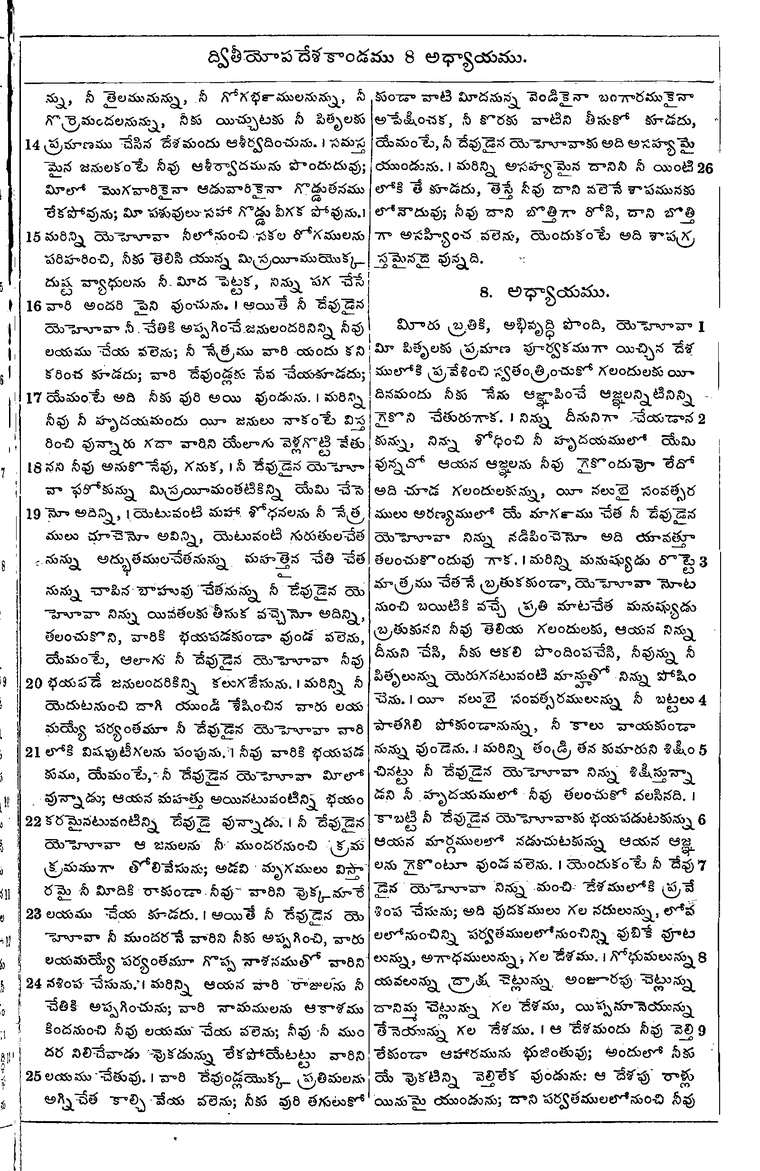 ద్వితీయోపదేశకాండము 8 అధ్యాయము.
న్ను, నీ తైలమునున్ను, నీ గోగర్భములనున్ను, నీ
గొర్రెమందలనున్ను, నీకు యిచ్చుటకు నీ పితృలకు
14 ప్రమాణము చేసిన దేశమందు ఆశీర్వదించును. । సమస్త
మైన జనులకంటే నీవు ఆశీర్వాదమును పొందుదువు;
మీలో మొగవారికైనా ఆడువారికైనా గొడ్డుతనము
లేకపోవును; మీ పశువులు సహా గొడ్డు వీగక పోవును. ।
15 మరిన్ని యెహోవా నీలోనుంచి సకల రోగములను
పరిహరించి, నీకు తెలిసి యున్న మిస్రయీముయొక్క
దుష్ట వ్యాధులను నీ మీద పెట్టక, నిన్ను పగ చేసే
16 వారి అందరి పైని వుంచును. । అయితే నీ దేవుడైన
యెహోవా నీ చేతికి అప్పగించే జనులందరినిన్ని నీవు
లయము చేయ వలెను; నీ నేత్రము వారి యందు కని
కరించ కూడదు; వారి దేవుండ్లకు సేవ చేయకూడదు;
17 యేమంటే అది నీకు వురి అయి వుండును. । మరిన్ని
నీవు నీ హృదయమందు యీ జనులు నాకంటే విస్త
రించి వున్నారు గదా వారిని యేలాగు వెళ్లగొట్టి వేతు
18 నని నీవు అనుకొనేవు, గనుక, । నీ దేవుడైన యెహో
వా ఫరోకున్ను మిస్రయీమంతటికిన్ని యేమి చేసె
19 నో అదిన్ని, । యెటువంటి మహా శోధనలను నీ నేత్ర
ములు చూచెనో అవిన్ని, యెటువంటి గురుతులచేత
నున్ను అద్భుతములచేతనున్ను మహత్తైన చేతి చేత
నున్ను చాపిన బాహువు చేతనున్ను నీ దేవుడైన యె
హోవా నిన్ను యివతలకు తీసుక వచ్చెనో అదిన్ని,
తలంచుకొని, వారికి భయపడకుండా వుండ వలెను,
యేమంటే, ఆలాగు నీ దేవుడైన యెహోవా నీవు
20 భయపడే జనులందరికిన్ని కలుగచేసును. । మరిన్ని నీ
యెదుటనుంచి దాగి యుండి శేషించిన వారు లయ
మయ్యే పర్యంతమూ నీ దేవుడైన యెహోవా వారి
21 లోకి విషపుటీగలను పంపును. । నీవు వారికి భయపడ
కుము, యేమంటే, నీ దేవుడైన యెహోవా మీలో
వున్నాడు; ఆయన మహత్తు అయినటువంటిన్ని భయం
22 కరమైనటువంటిన్ని దేవుడై వున్నాడు. । నీ దేవుడైన
యెహోవా ఆ జనులను నీ ముందరనుంచి క్రమ
క్రమముగా తోలివేసును; అడవి మృగములు విస్తా
రమై నీ మీదికి రాకుండా నీవు వారిని వొక్కమారే
23 లయము చేయ కూడదు. । అయితే నీ దేవుడైన యె
హోవా నీ ముందరనే వారిని నీకు అప్పగించి, వారు
లయమయ్యే పర్యంతమూ గొప్ప నాశనముతో వారిని
24 నశింప చేసును. । మరిన్ని ఆయన వారి రాజులను నీ
చేతికి అప్పగించును; వారి నామములను ఆకాశము
కిందనుంచి నీవు లయము చేయ వలెను; నీవు నీ ముం
దర నిలిచేవాడు వొకడున్ను లేకపోయేటట్టు వారిని
25 లయము చేతువు. । వారి దేవుండ్లయొక్క ప్రతిమలను
అగ్నిచేత కాల్చి వేయ వలెను; నీకు వురి తగులుకో
కుండా వాటి మీదనున్న వెండికైనా బంగారముకైనా
అపేక్షించక, నీ కొరకు వాటిని తీసుకో కూడదు,
యేమంటే, నీ దేవుడైన యెహోవాకు అది అసహ్యమై
యుండును. । మరిన్ని అసహ్యమైన దానిని నీ యింటి 26
లోకి తే కూడదు, తెస్తే నీవు దాని వలెనే శాపమునకు
లోనౌదువు; నీవు దాని బొత్తిగా రోసి, దాని బొత్తి
గా అసహ్యించ వలెను, యెందుకంటే అది శాపగ్ర
స్తమైనదై వున్నది.
8. అధ్యాయము.
మీరు బ్రతికి, అభివృద్ధి పొంది, యెహోవా 1
మీ పితృలకు ప్రమాణ పూర్వకముగా యిచ్చిన దేశ
ములోకి ప్రవేశించి స్వతంత్రించుకో గలందులకు యీ
దినమందు నీకు నేను ఆజ్ఞాపించే ఆజ్ఞలన్నిటినిన్ని
గైకొని చేతురుగాక. । నిన్ను దీనునిగా చేయడాన 2
కున్ను, నిన్ను శోధించి నీ హృదయములో యేమి
వున్నదో ఆయన ఆజ్ఞలను నీవు గైకొందువో లేదో
అది చూడ గలందులకున్ను, యీ నలుభై సంవత్సర
ములు అరణ్యములో యే మార్గము చేత నీ దేవుడైన
యెహోవా నిన్ను నడిపించెనో అది యావత్తూ
తలంచుకొందువు గాక. । మరిన్ని మనుష్యుడు రొట్టె 3
మాత్రము చేతనే బ్రతుకకుండా, యెహోవా నోట
నుంచి బయిటికి వచ్చే ప్రతి మాటచేత మనుష్యుడు
బ్రతుకునని నీవు తెలియ గలందులకు, ఆయన నిన్ను
దీనుని చేసి, నీకు ఆకలి పొందింపచేసి, నీవున్ను నీ
పితృలున్ను యెరుగనటువంటి మాన్హుతో నిన్ను పోషిం
చెను. । యీ నలుభై సంవత్సరములున్ను నీ బట్టలు 4
పాతగిలి పోకుండానున్ను, నీ కాలు వాయకుండా
నున్ను వుండెను. । మరిన్ని తండ్రి తన కుమారుని శిక్షిం 5
చినట్టు నీ దేవుడైన యెహోవా నిన్ను శిక్షిస్తున్నా
డని నీ హృదయములో నీవు తలంచుకో వలసినది. ।
కాబట్టి నీ దేవుడైన యెహోవాకు భయపడుటకున్ను 6
ఆయన మార్గములలో నడుచుటకున్ను ఆయన ఆజ్ఞ
లను గైకొంటూ వుండ వలెను. । యెందుకంటే నీ దేవు 7
డైన యెహోవా నిన్ను మంచి దేశములోకి ప్రవే
శింప చేసును; అది వుదకములు గల నదులున్ను, లోవ
లలోనుంచిన్ని పర్వతములలోనుంచిన్ని వుబికే వూట
లున్ను, అగాధములున్ను, గల దేశము. । గోధుమలున్ను 8
యవలున్ను ద్రాక్ష చెట్లున్ను అంజూరపు చెట్లున్ను
దానిమ్మ చెట్లున్ను గల దేశము, యిప్పనూనెయున్ను
తేనెయున్ను గల దేశము. । ఆ దేశమందు నీవు వెల్తి 9
లేకుండా ఆహారమును భుజింతువు; అందులో నీకు
యే వొకటిన్ని వెల్తిలేక వుండును: ఆ దేశపు రాళ్లు
యినుమై యుండును; దాని పర్వతములలోనుంచి నీవు